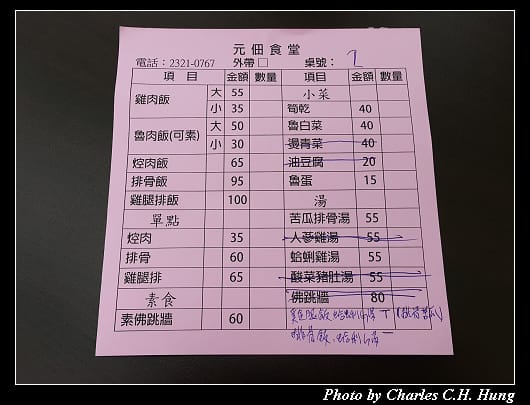 元佃食堂
電話：2321-0767 外帶□ 桌號：
項目 金額 數量 項目 金額 數量
雞肉飯 大 55 小菜
小 35 筍乾 40
魯肉飯(可素) 大 50 魯白菜 40
小 30 燙青菜 40
焢肉飯 65 油豆腐 20
排骨飯 95 魯蛋 15
雞腿排飯 100 湯
單點 苦瓜排骨湯 55
焢肉 35 人蔘雞湯 55
排骨 60 蛤蜊雞湯 55
雞腿排 65 酸菜豬肚湯 55
素食 佛跳牆 80
素佛跳牆 60
排骨飯、蛤利湯
Photo by Charles C.H. Hung